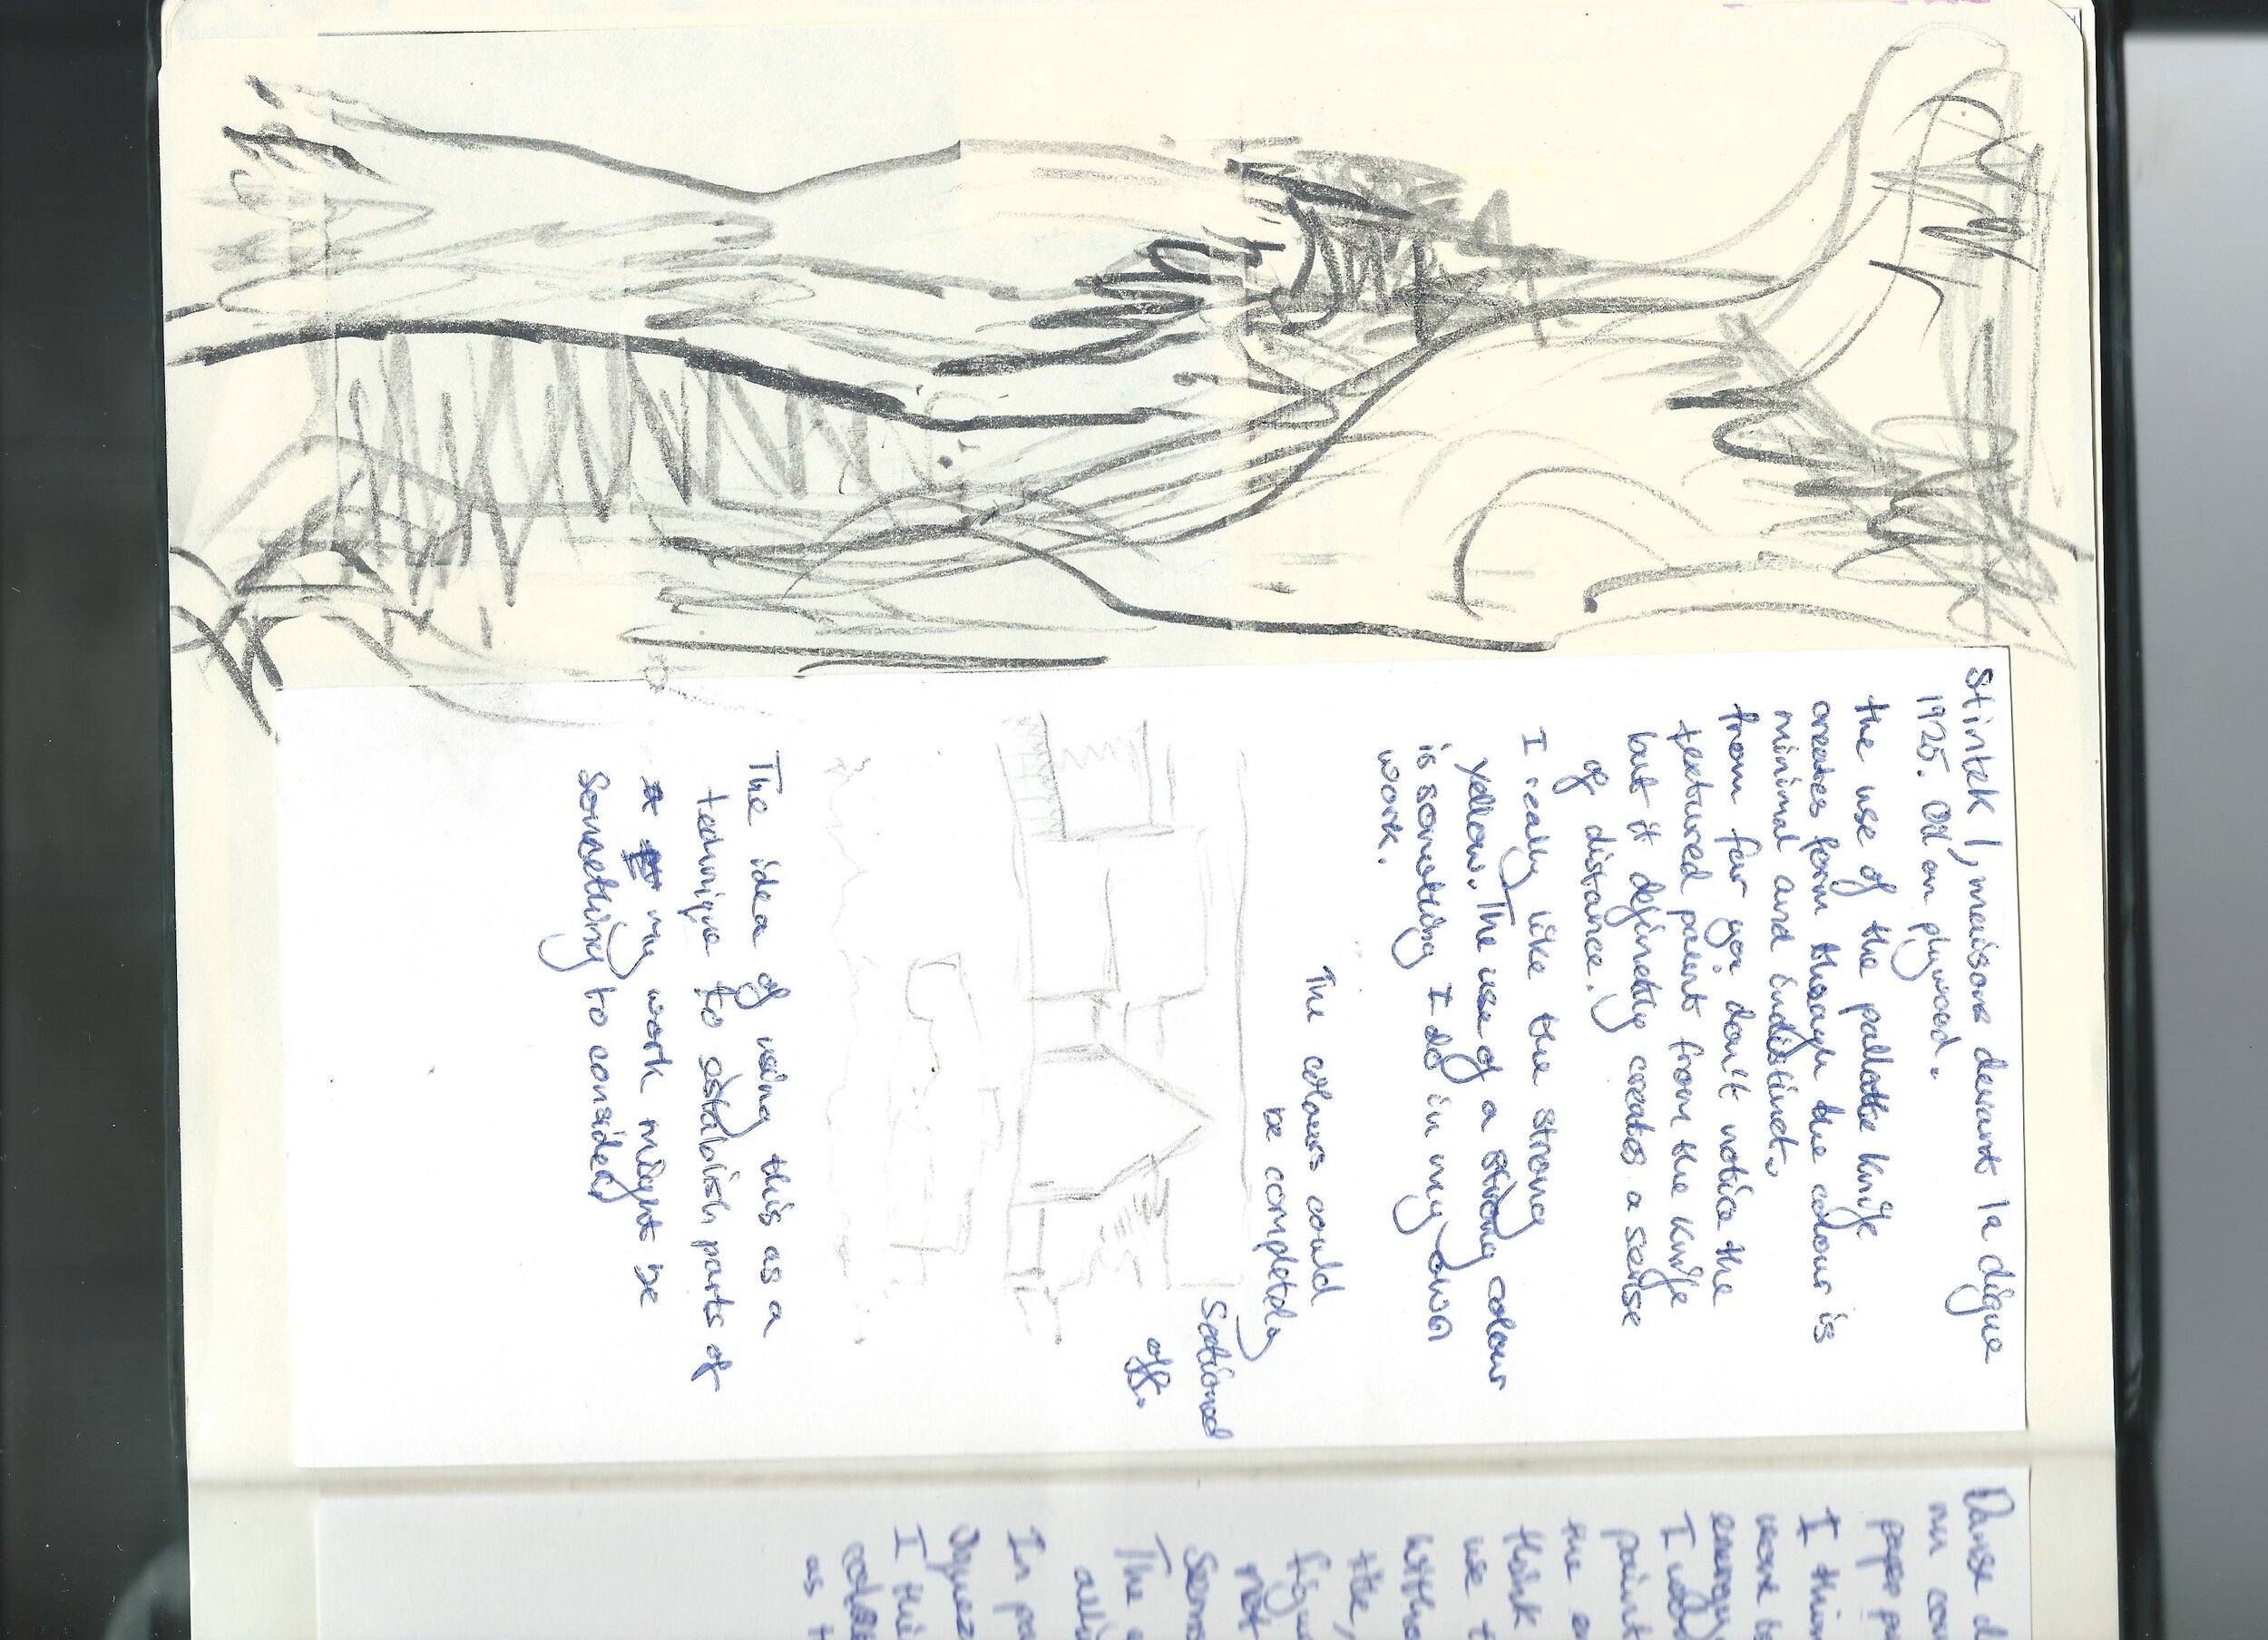 Stintek !, maisons devant la digue
1925. Oil on plywood.
the use of the pallatte knife
creates form though the colour is
minimal and indistinct.
from far you don't notice the
textured paint from the knife
but it definitely creates a sense
of distance.
I really like the strong
yellow. The use of a strong colour
is something I do in my own
work.
The colours could
be completely
Sectioned
off.
The idea of using this as a
technique to establish parts of
my work might be
Something to consider
Danse d
nu cou
paper p
I thin
more b
energy
I wou
paint
the a
think
use t
witho
title,
figu
not
Some
The
alli
In pa
I thi
colou
as t